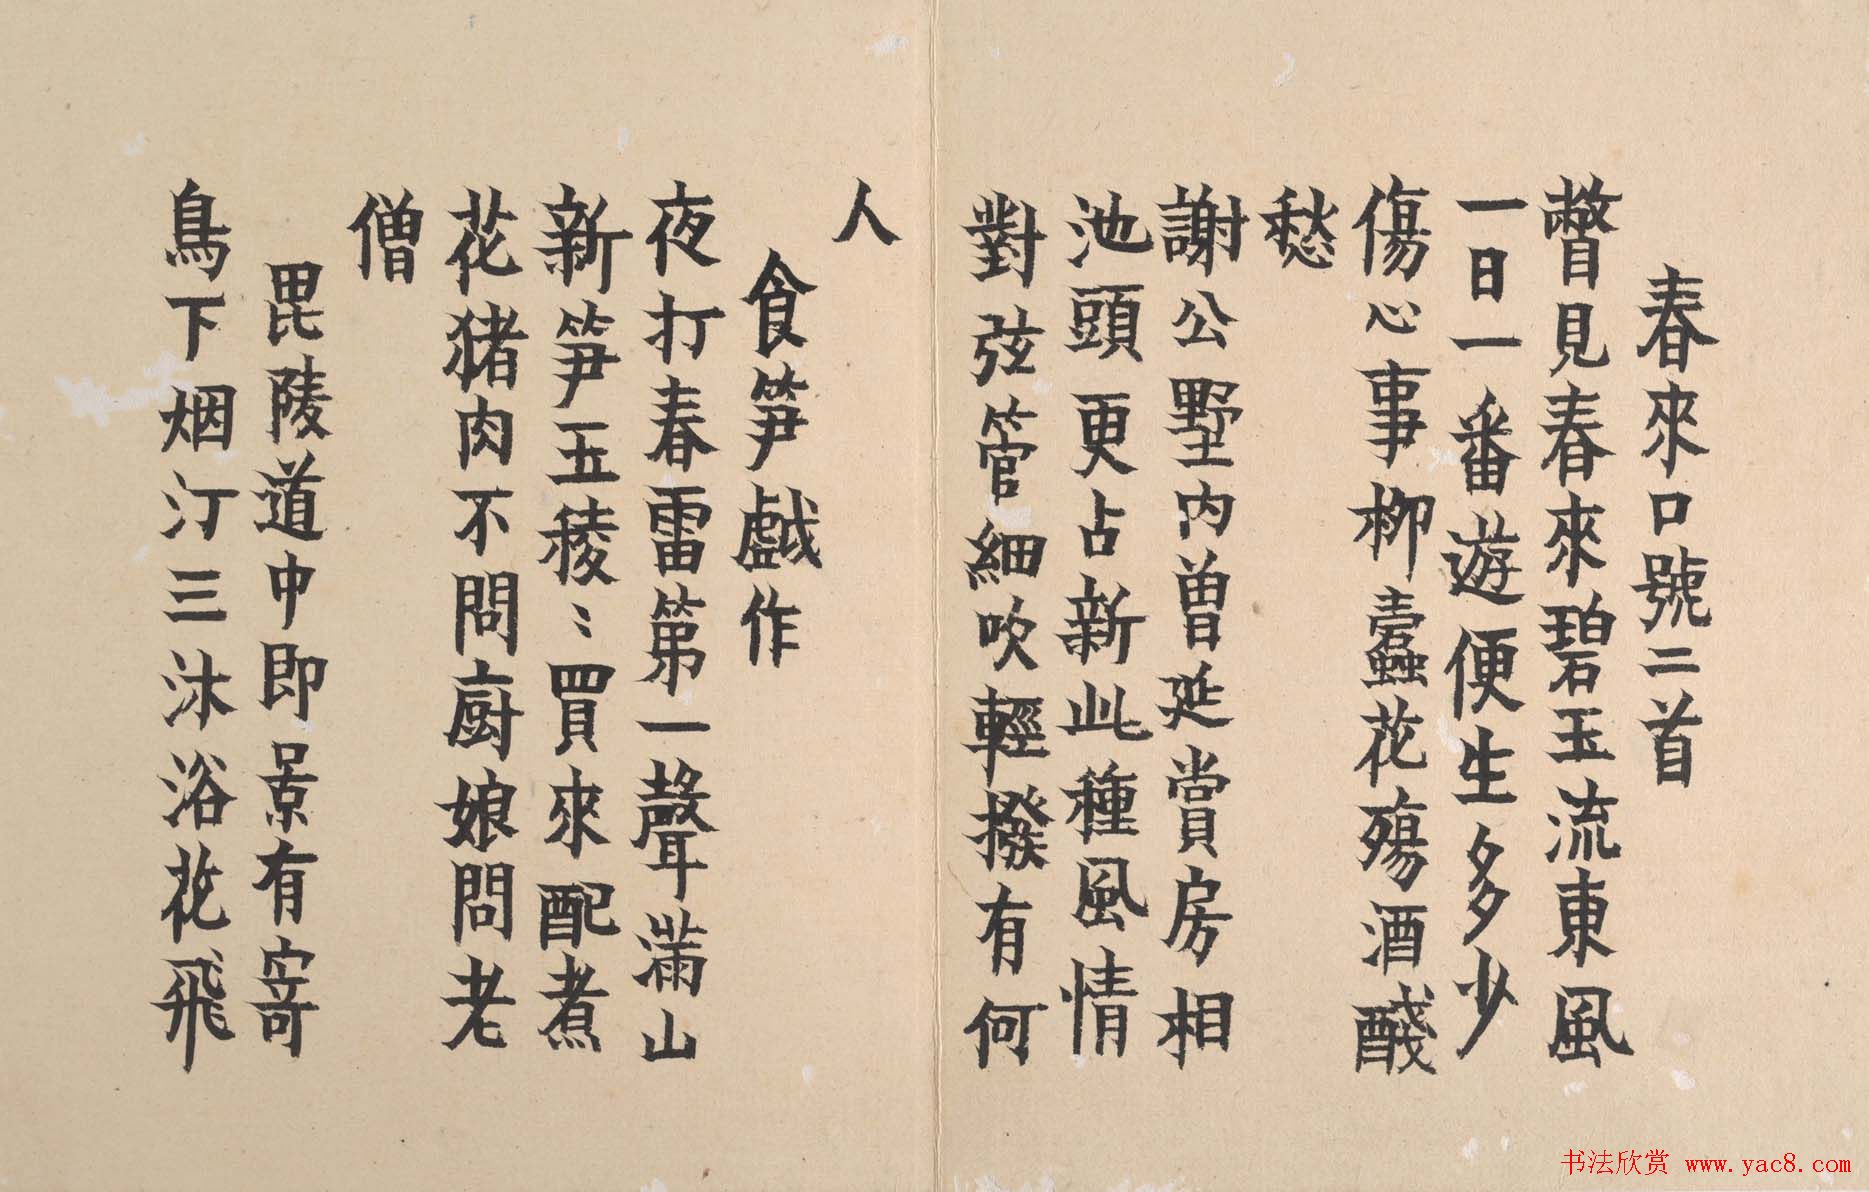 春來口號二首
瞥見春來碧玉流東風
一日一番遊便生多少
傷心事柳蠹花殤酒醆
愁
謝公墅内曾延賞房相
池頭更占新此種風情
對弦管細吹輕撥有何
人
食笋戲作
夜打春雷第一聲滿山
新笋玉稜〻買來配煮
花猪肉不問廚娘問老
僧
毘陵道中即景有寄
鳥下烟汀三沐浴花飛
书法欣赏 www.yac8.com